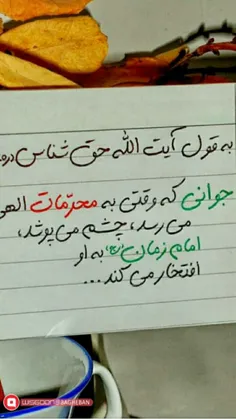 به قول آیت الله حق شناس
جوانی که وقتی به محرّمات الهی
می رسد، چشم می پوشد،
امام زمان (عج) به او
افتخار می کند...